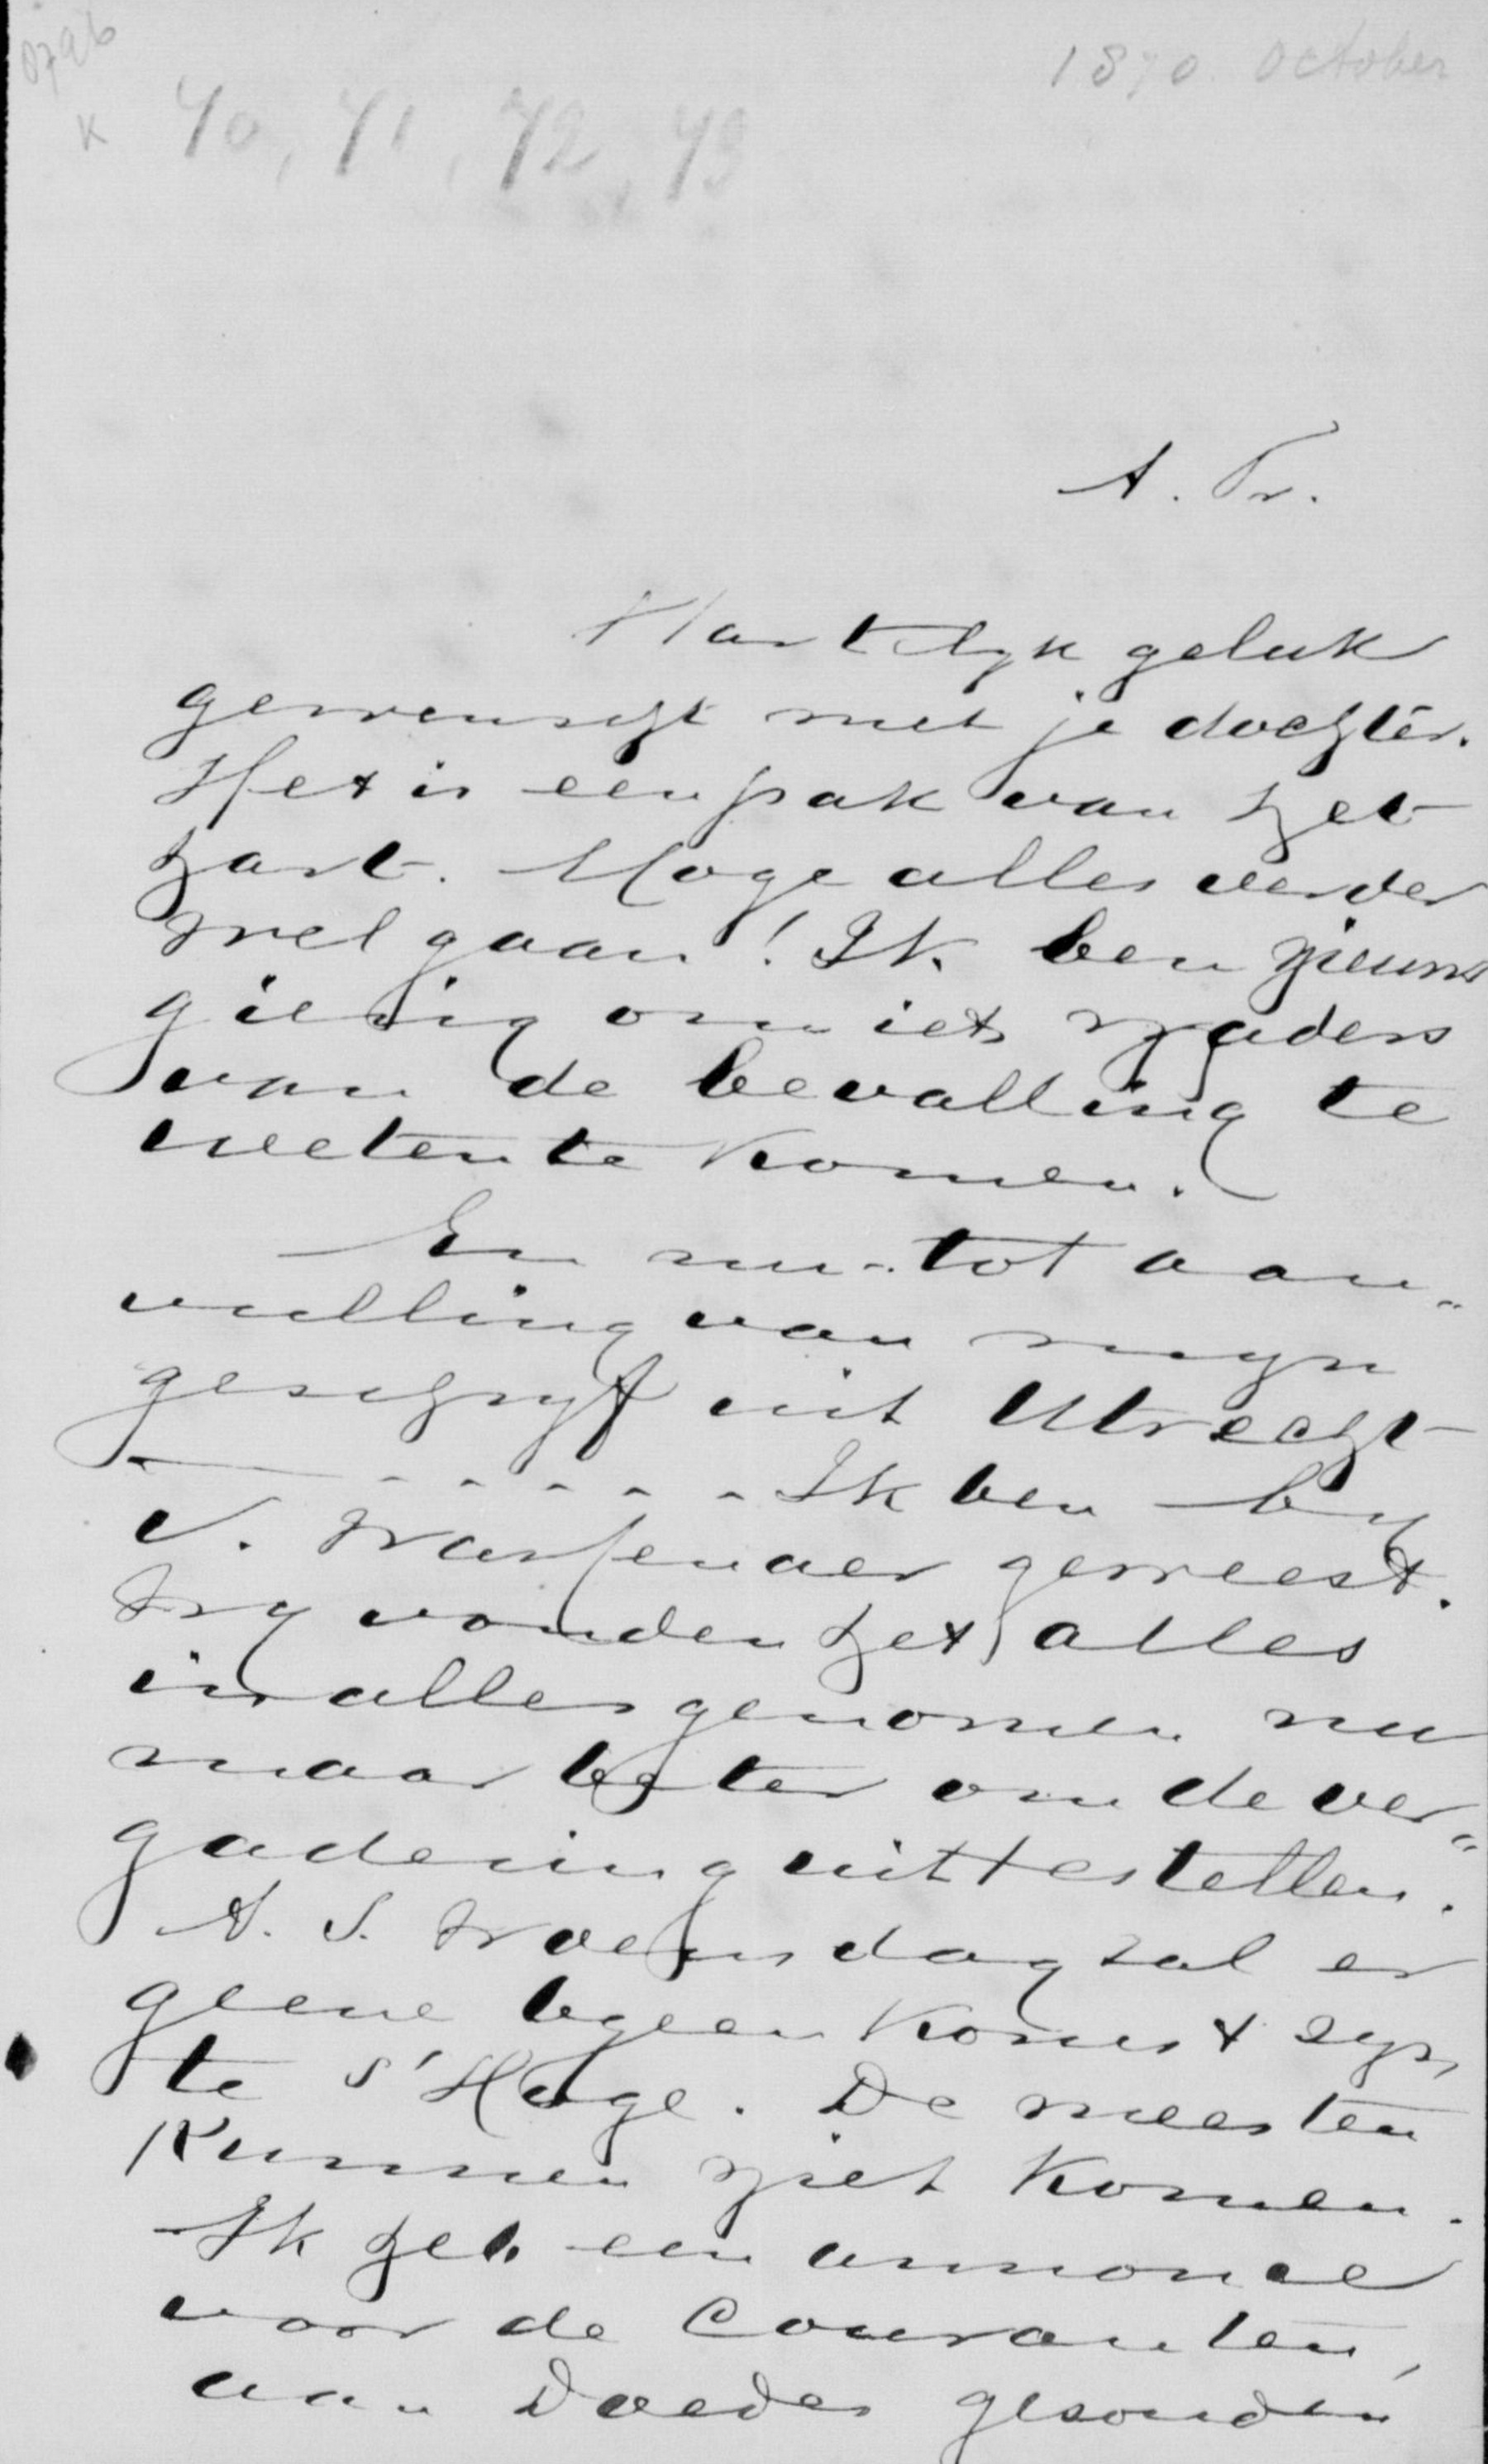 0796
K 70, 71, 72, 73
1870 October
A. Br.
Hartelyk geluk
gewenscht met je dochter.
Het is een pak van het
hart. Moge alles verder
wel gaan! Ik ben nieuws
gierig om iets naders
van de bevalling te
weten te komen.
En nu tot aan„
vulling van myn
geschryf uit Utrecht
- - - - - Ik ben by
v. Wassenaer geweest.
Wy vonden het alles
in alles genomen nu
maar beter om de ver„
gadering uittestellen.
A. S. Woensdag zal er
geene byeenkomst zyn
te s'Hage. De meesten
kunnen niet komen.
Ik heb een annonce
voor de Couranten,
aan Doedes gezonden